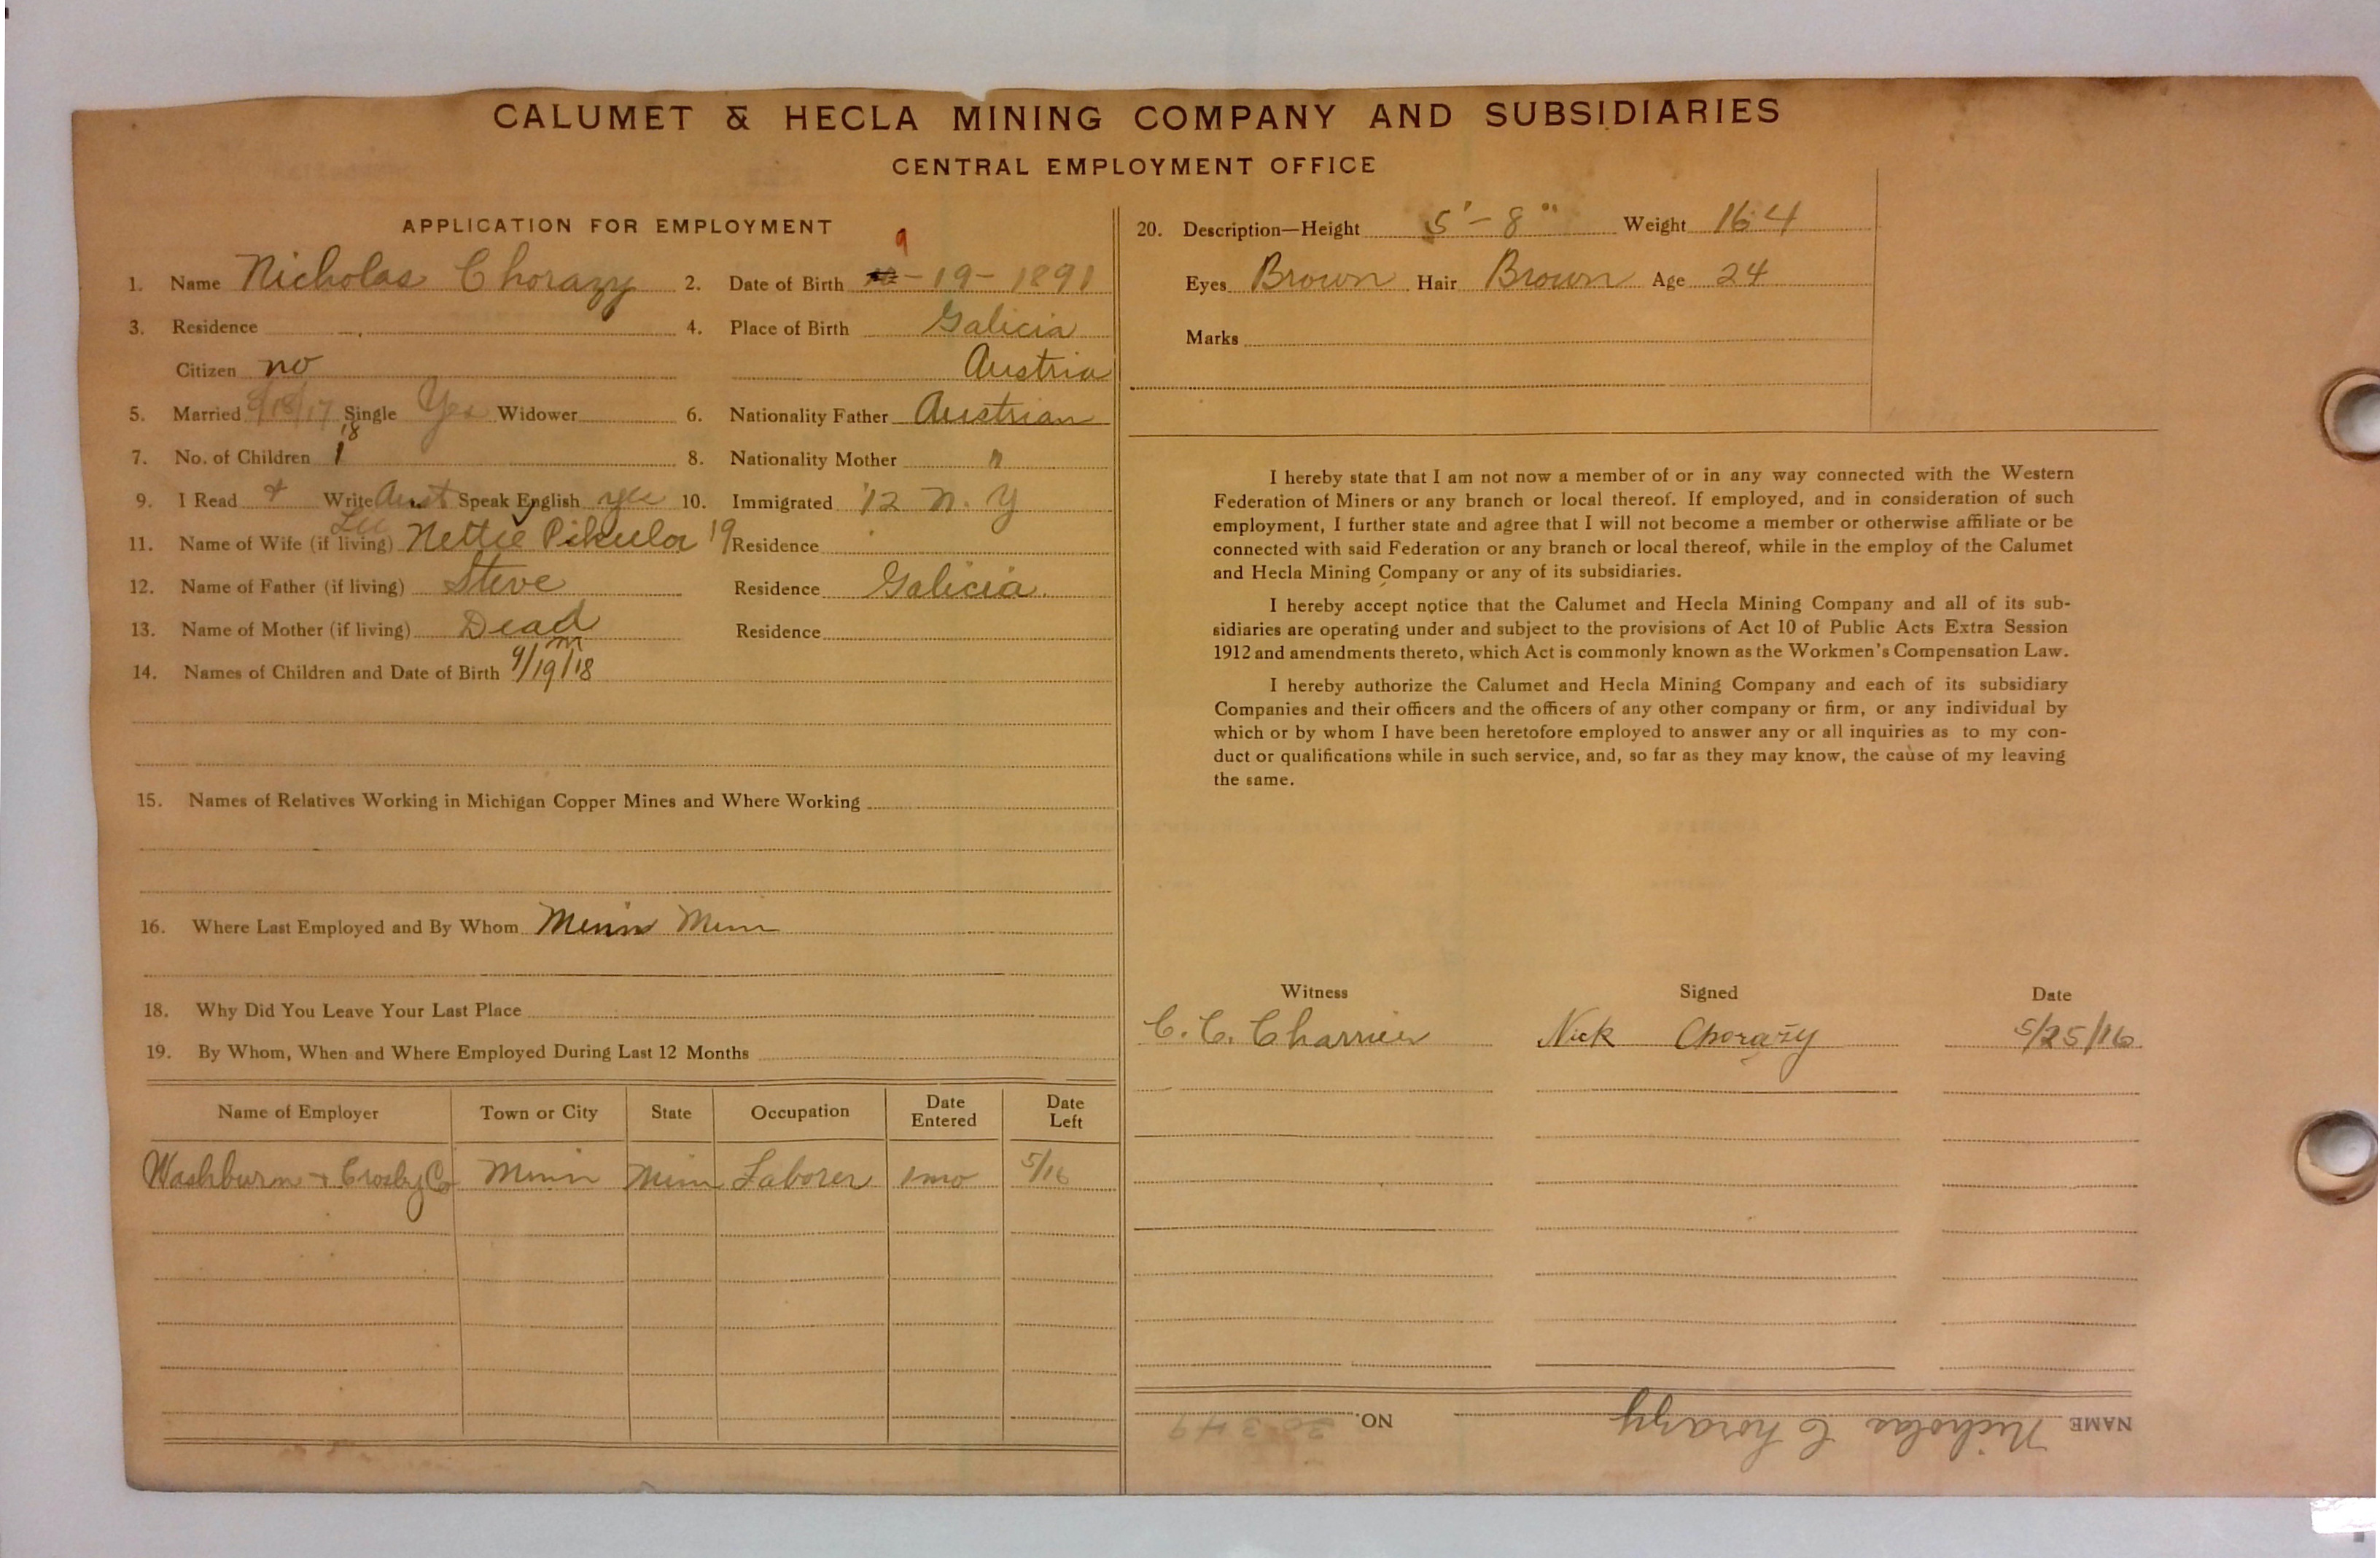 CALUMET & HECLA MINING COMPANY AND SUBSIDIARIES
CENTRAL EMPLOYMENT OFFICE
APPLICATION FOR EMPLOYMENT
9
1. Name Nicholas Chorazy 2. Date of Birth - 19 - 1891
3. Residence 4. Place of Birth Galicia
Citizen no Austria
5. Married 8/18/17 Single Yes Widower 6. Nationality Father Austrian
18
7. No. of Children 1 8. Nationality Mother "
9. I Read + Write Aust Speak English yes 10. Immigrated '12 N. Y
11. Name of Wife (if living) Nettie Pikula 19 Residence
12. Name of Father (if living) Steve Residence Galicia.
13. Name of Mother (if living) Dead Residence
m
14. Names of Children and Date of Birth 9/19/18
15. Names of Relatives Working in Michigan Copper Mines and Where Working
16. Where Last Employed and By Whom Minn Minn
18. Why Did You Leave Your Last Place
19. By Whom, When and Where Employed During Last 12 Months
Name of Employer Town or City State Occupation Date Entered Date Left
Washburn + Crosby Co Minn Minn Laborer 1mo 5/16
20. Description—Height 5' - 8" Weight 164
Eyes Brown Hair Brown Age 24
Marks
I hereby state that I am not now a member of or in any way connected with the Western
Federation of Miners or any branch or local thereof. If employed, and in consideration of such
employment, I further state and agree that I will not become a member or otherwise affiliate or be
connected with said Federation or any branch or local thereof, while in the employ of the Calumet
and Hecla Mining Company or any of its subsidiaries.
I hereby accept notice that the Calumet and Hecla Mining Company and all of its sub-
sidiaries are operating under and subject to the provisions of Act 10 of Public Acts Extra Session
1912 and amendments thereto, which Act is commonly known as the Workmen's Compensation Law.
I hereby authorize the Calumet and Hecla Mining Company and each of its subsidiary
Companies and their officers and the officers of any other company or firm, or any individual by
which or by whom I have been heretofore employed to answer any or all inquiries as to my con-
duct or qualifications while in such service, and, so far as they may know, the cause of my leaving
the same.
Witness Signed Date
C. C. Charrier Nick Chorazy 5/25/16
NAME Nicholas Chorazy NO.